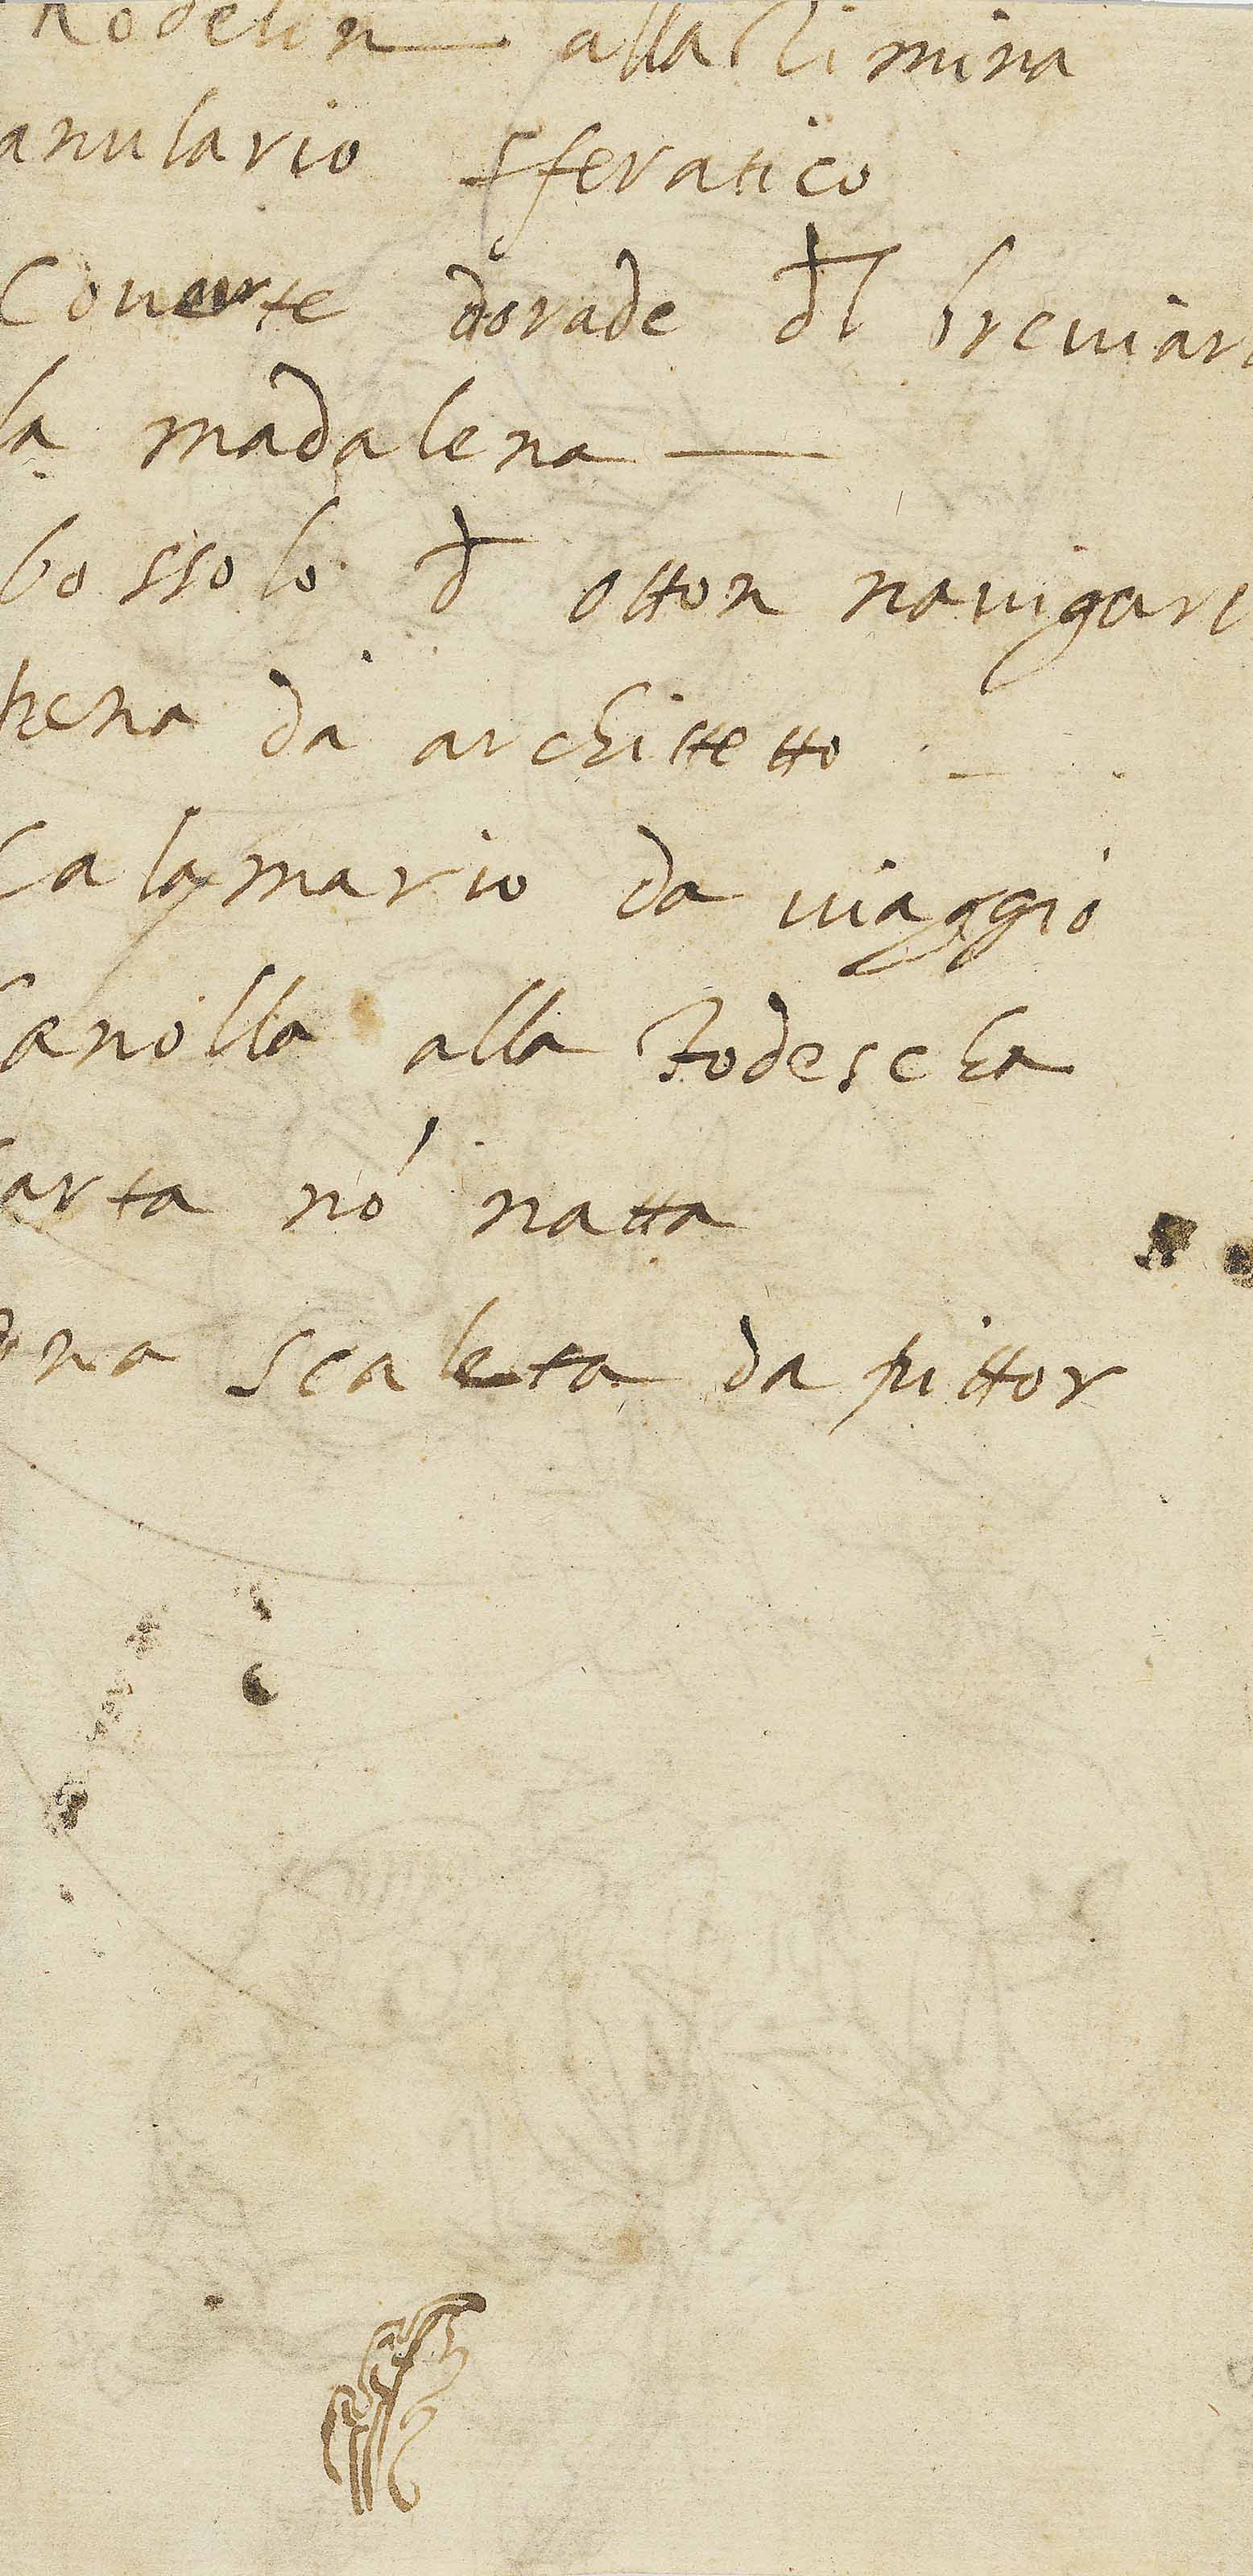 Rodelin alla Zimina
anulario sferatico
Couerte dorade dl breuiari
la madalena
bossolo d otton nauigare
pena da archittetto
Calamario da uiaggio
Canolla alla Todescha
Carta nó natta
una scaleta da pittor